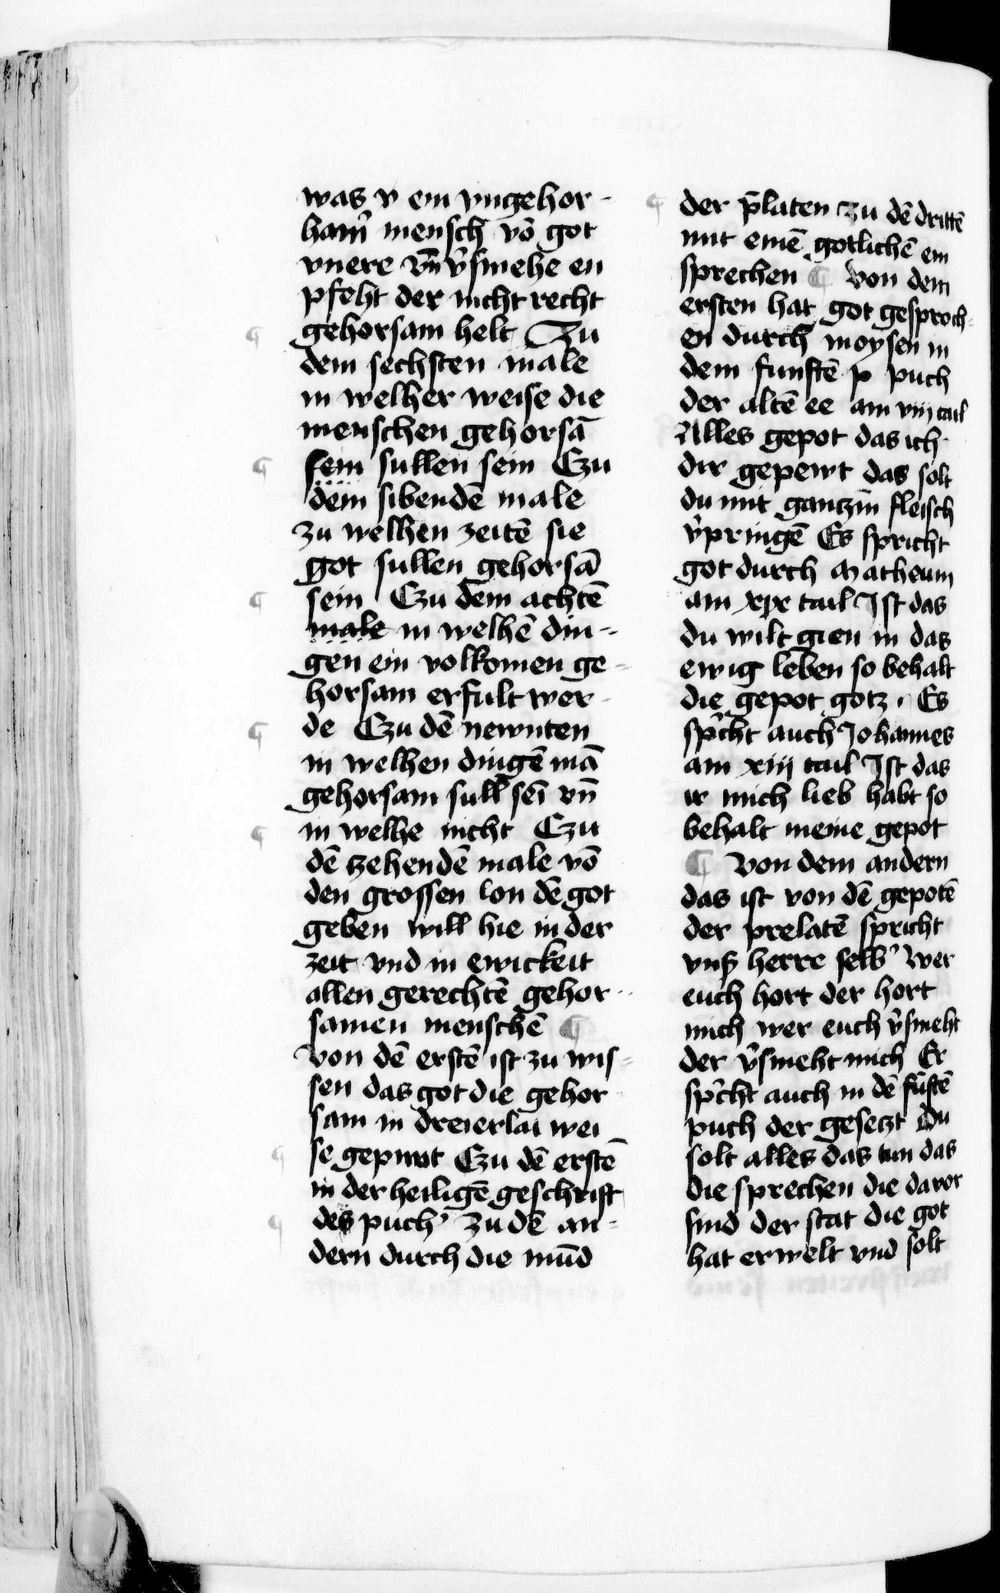 was v ein vngehor-
ham̄ mensch vō got
vnere vn̄ v̓smehe en
pfeht der nicht recht
¶ gehorsam helt Zu
dem sechsten male
in welher weise die
menschen gehorsā
¶ sein sullen sein Czu
dem sibendē male
zu welhen zeitē sie
got sullen gehorsā
¶ sein Czu dem achtē
male in welhē din-
gen ein volkomen ge-
horsam erfult wer-
¶ de Czu dē newnten
in welhen dingē mā
gehorsam sull seī vn̄
¶ in welhe nicht Czu
dē zehendē male vō
den grossen lon dē got
geben will hie in der
zeit vnd in ewickeit
allen gerechtē gehor-
samen menschē ¶
Von dē erstē ist zu wis-
sen das got die gehor
sam in dreierlai wei
¶ se gepiwt Czu dē erstē
in der heiligē geschrift
¶ des puch zu dē an-
dern durch die mūd
¶ der p̄laten zu dē drittē
mit einē gotlichē ein
sprechen ¶ Von dem
ersten hat got gesproch-
en durch moysen in
dem funftē p puch
der altē ee am viij tail
Alles gepot das ich
dir gepewt das solt
du mit ganczm̄ fleisch
v̓pringē Es spricht
got durch Matheum
am xix tail Ist das
du wilt gien in das
ewig leben so behalt
die gepot gotz Es
sp̓cht auch Johannes
am xiij tail Ist das
ir mich lieb habt so
behalt meine gepot
¶ Von dem andern
das ist von dē gepotē
der prelatē spricht
vnß herre selb Wer
euch hort der hort
mich wer euch v̓smeht
der v̓smeht mich Er
sp̓cht auch in dē fūftē
puch der gesetzt Du
solt alles das tun das
die sprechen die davor
sind der stat die got
hat erwelt vnd solt